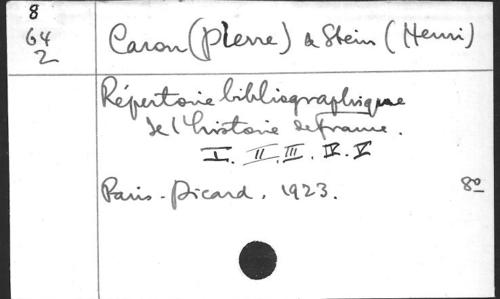 8
64
2
Caron (Pierre) & Stein (Henri)
Répertoire bibliographique
de l'histoire de France.
I. II. III. IV. V
Paris - Picard. 1923. 8º